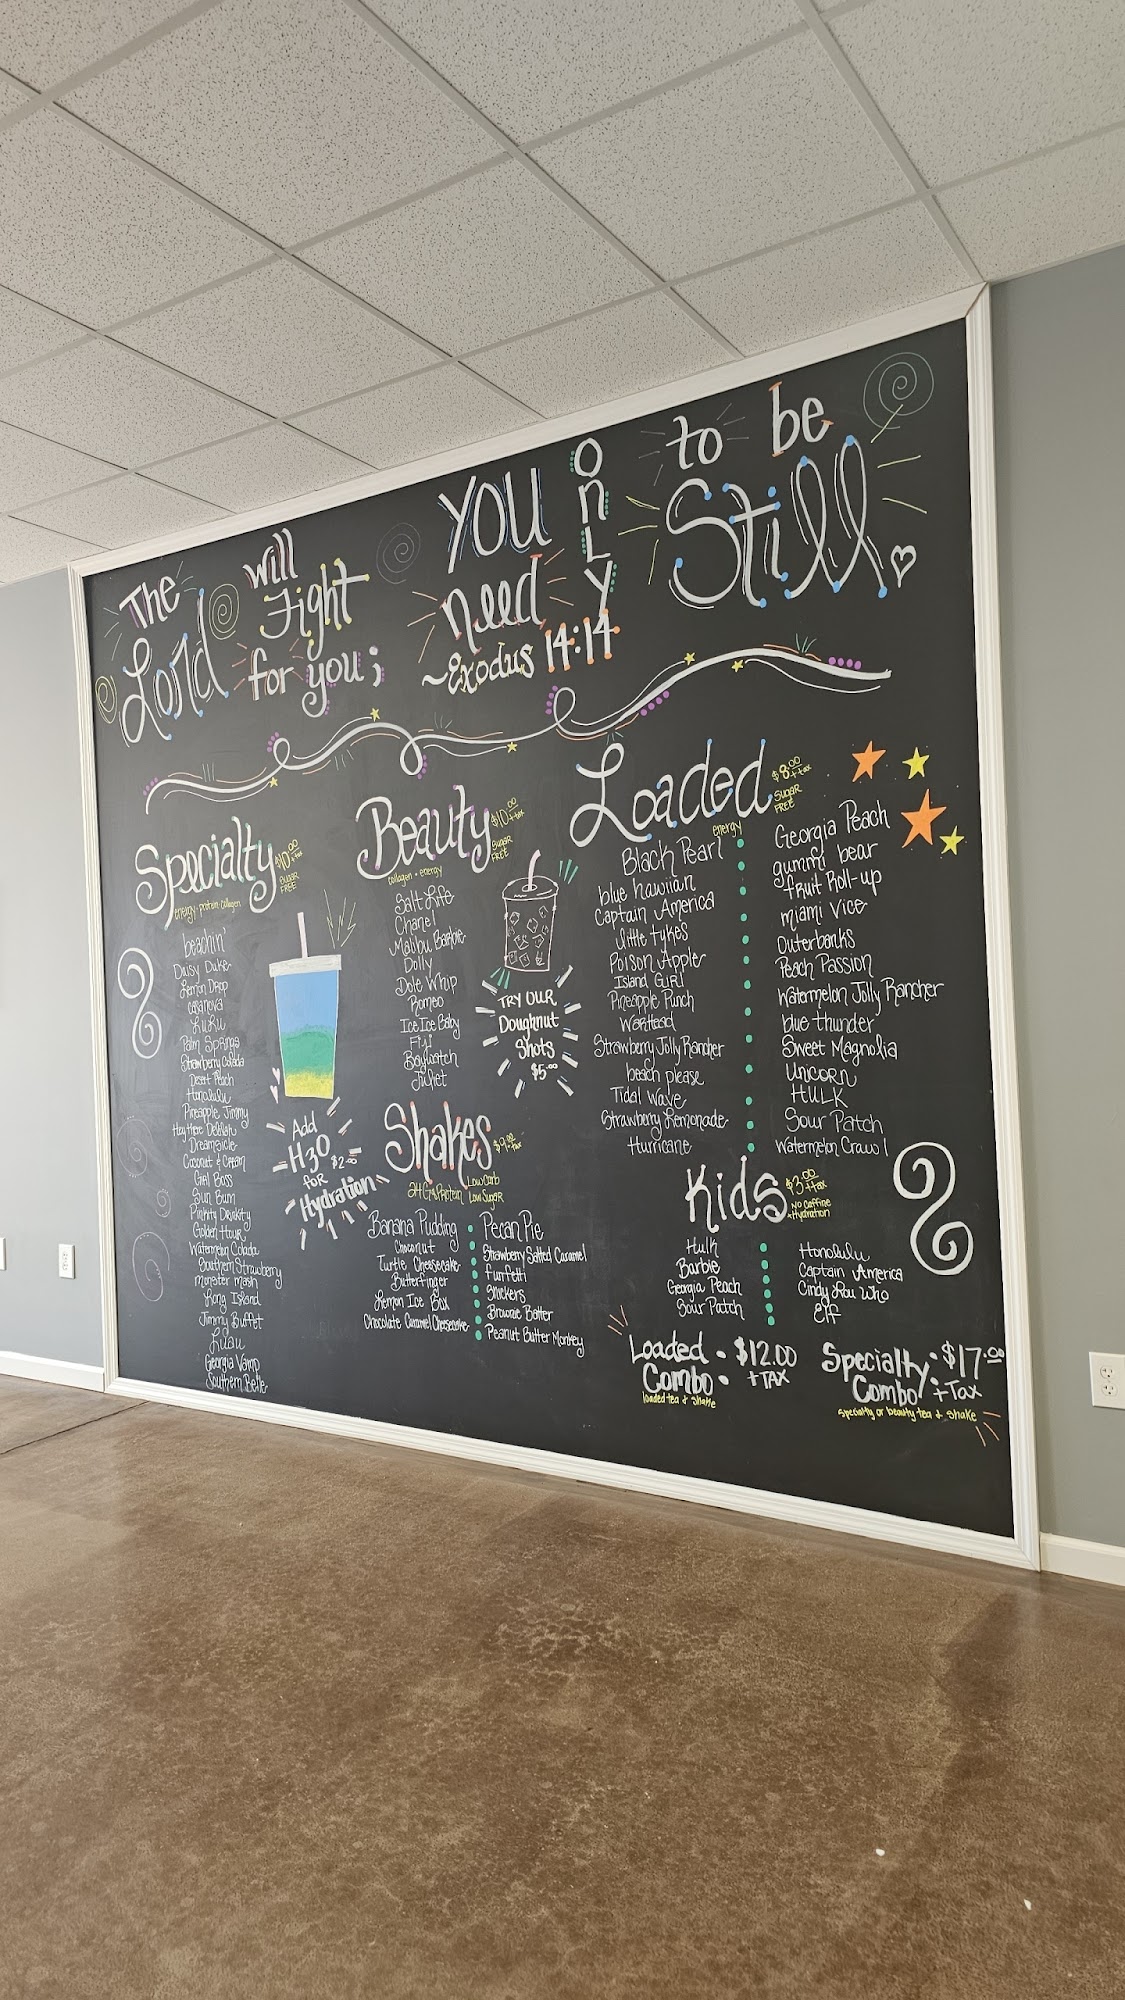 The
Lord
will
Fight
for you;
YOU
need
ONLY
to be
Still
~Exodus 14:14
Specialty
$10.00 +tax
SUGAR
FREE
energy·protein·collagen
beachin'
Daisy Duke
Lemon Drop
casanova
LuLu
Palm Springs
Strawberry Colada
Desert Peach
Honolulu
Pineapple Jimmy
Hey there Delilah
Dreamsicle
Coconut & Cream
Girl Boss
Sun Bum
Pinkity Drinkity
Golden Hour
Watermelon Colada
Southern Strawberry
monster mash
Long Island
Jimmy Buffet
Luau
Georgia Vamp
Southern Belle
Add
H3O
$2.00
for
Hydration
Beauty
$10.00 +tax
SUGAR
FREE
collagen + energy
Salt Life
Chanel
Malibu Barbie
Dolly
Dole Whip
Romeo
Ice Ice Baby
Fiji
Baywatch
Juliet
TRY OUR
Doughnut
Shots
$5.00
Shakes
$9.00 +tax
24 Gms Protein
Low Carb
Low Sugar
Banana Pudding
Choconut
Turtle Cheesecake
Butterfinger
Lemon Ice Box
Chocolate Caramel Cheesecake
Pecan Pie
Strawberry Salted Caramel
funfetti
Snickers
Brownie Batter
Peanut Butter Monkey
Loaded
$8.00 +tax
SUGAR
FREE
energy
Black Pearl
blue hawiian
Captain America
little tykes
Poison Apple
Island Girl
Pineapple Punch
WarHead
Strawberry Jolly Rancher
beach please
Tidal Wave
Strawberry Lemonade
Hurricane
Georgia Peach
gummi bear
fruit Roll-up
miami vice
Outerbanks
Peach Passion
Watermelon Jolly Rancher
blue thunder
Sweet Magnolia
Unicorn
HULK
Sour Patch
Watermelon Crawl
Kids
$3.00 +tax
No caffine
+Hydration
Hulk
Barbie
Georgia Peach
Sour Patch
Honolulu
Captain America
Cindy Lou Who
Elf
Loaded
Combo
$12.00
+TAX
loaded tea & shake
Specialty
Combo
$17.00
+Tax
specialty or beauty tea & shake